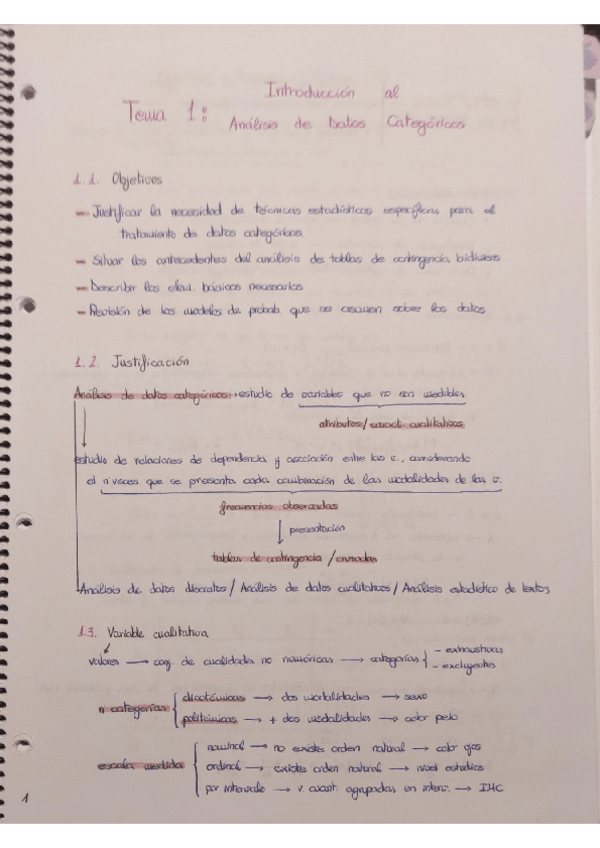 Introducción al
Tema 1: Análisis de Datos Categóricos
1.1. Objetivos
- Justificar la necesidad de técnicas estadísticas específicas para el
tratamiento de datos categóricos.
- Situar los antecedentes del análisis de tablas de contingencia bidimens
- Describir los elem. básicos necesarios
- Revisión de los modelos de probab. que se asumen sobre los datos
1.2. Justificación
Análisis de datos categóricos → estudio de variables que no son medibles
atributos / caract. cualitativas
estudio de relaciones de dependencia y asociación entre las v., considerando
el nº veces que se presenta cada combinación de las modalidades de las v.
frecuencias observadas
presentación
tablas de contingencia / cruzadas
Análisis de datos discretos / Análisis de datos cualitativos / Análisis estadístico de textos
1.3. Variable cualitativa
valores → conj. de cualidades no numéricas → categorías { - exhaustivas
- excluyentes
n categorías { dicotómicas → dos modalidades → sexo
politómicas → + dos modalidades → color pelo
escala medida { nominal → no existe orden natural → color ojos
ordinal → existe orden natural → nivel estudios
por intervalo → v. cuant. agrupadas en interv. → IMC
1